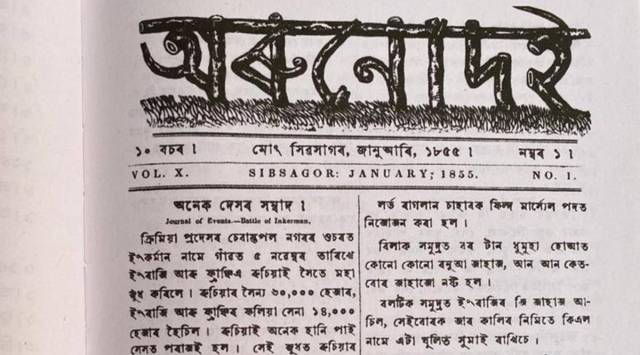 অৰুনোদই
১০ বচৰ ৷ মোং সিৱসাগৰ, জানুআৰি, ১৮৫৫ ৷ নম্বৰ ১ ৷
VOL. X. SIBSAGOR: JANUARY; 1855. NO. 1.
অনেক দেসৰ সম্বাদ ৷
Journal of Events.—Battle of Inkerman.
ক্ৰিমিয়া প্ৰদেসৰ চেবাস্তপল নগৰৰ ওচৰত
ইংকৰ্মান নামে গাঁৱত ৫ নবেম্বৰ তাৰিখে
ইংৰাজি আৰু ফ্ৰান্সিএ ৰুচিয়াই সৈতে মহা
জুধ কৰিলে ৷ ৰুচিয়াৰ সৈন্য ৬০,০০০ হেজাৰ,
ইংৰাজি আৰু ফ্ৰান্সিৰ কলিয়া সেনা ১৪,০০০
হেজাৰ হৈচিল ৷ ৰুচিয়াই অনেক হানি পাই
সেসত পৰাজই হল ৷ সেই জুধত ৰুচিয়াৰ
লৰ্ড ৰাগলান চাহাবক ফিল্দ মাৰ্সেল পদত
নিজোজন কৰা হল ৷
বিলাক সমুদ্ৰত বৰ টান ধুমুহা হোআত
কোনো কোনো বমুআ জাহাজ, আন আন কেত-
বোৰ জাহাজো নষ্ট হল ৷
বলটিক সমুদ্ৰত ইংৰাজিৰ জি জাহাজ আ-
চিল, সেইবোৰক জাৰ কালিৰ নিমিতে কিএল
নামে এটা খুলিত সুমাই ৰাখিচে ৷